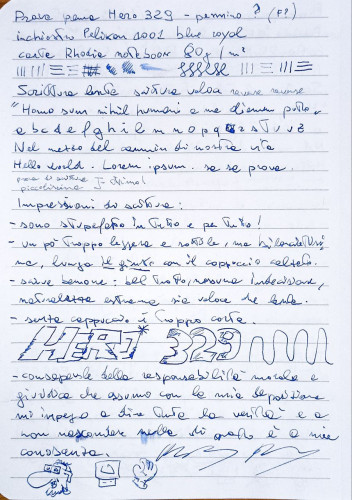 Prova penna Hero 329 - pennino ? (F?)
inchiostro Pelikan 4001 blue royal
carta Rhodia notebook 80g/m²
Scrittura lenta scrittura veloce reverse reverse
"Homo sum nihil humani a me alienum puto"
a b c d e f g h i l m n o p q r s t u v z
Nel mezzo del cammin di nostra vita
Hello world. Lorem ipsum. sa sa prova.
prova di scrittura
piccolissima
Impressioni di scrittura:
- sono stupefatto in tutto e per tutto!
- un po' troppo leggera e sottile, ma bilanciatissi
ma, lunga il giusto con il cappuccio calzato.
- scrive benone: bel tratto, nessuna indecisione,
naturalezza estrema sia veloce che lenta.
- senza cappuccio è troppo corta.
HERO 329
- consapevole della responsabilità morale e
giuridica che assumo con la mia deposizione
mi impegno a dire tutta la verità e a
non nascondere nulla di quanto è a mia
conoscenza.